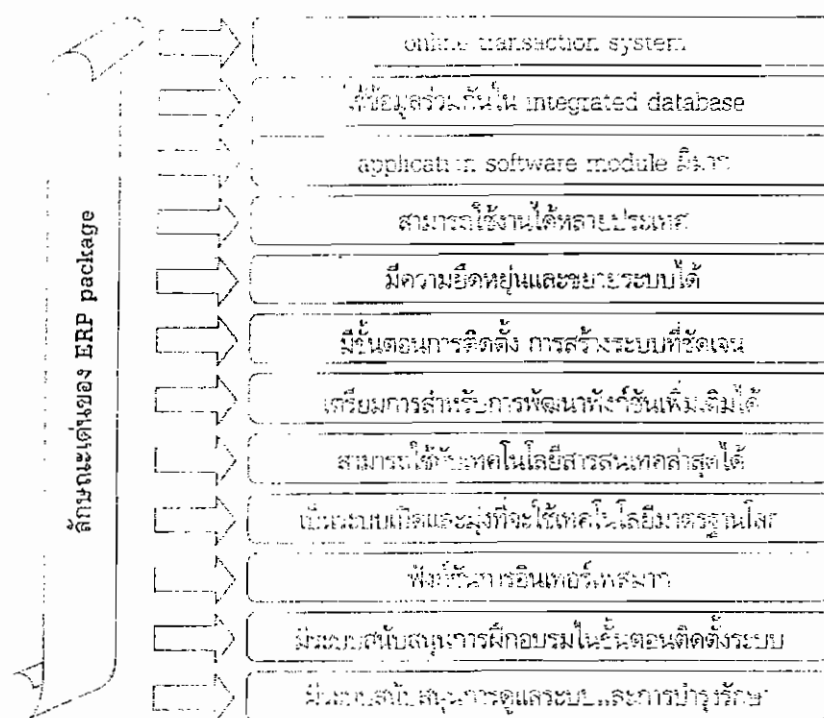 ลักษณะเด่นของ ERP package
online transaction system
ใช้ข้อมูลร่วมกันใน integrated database
application software module มีมาก
สามารถใช้งานได้หลายประเทศ
มีความยืดหยุ่นและขยายระบบได้
มีขั้นตอนการติดตั้ง การสร้างระบบที่ชัดเจน
เตรียมการสำหรับการพัฒนาฟังก์ชันเพิ่มเติมได้
สามารถใช้กับเทคโนโลยีสารสนเทศล่าสุดได้
เป็นระบบเปิดและมุ่งที่จะใช้เทคโนโลยีมาตรฐานโลก
ฟังก์ชันการอินเทอร์เฟสมาก
มีระบบสนับสนุนการฝึกอบรมในขั้นตอนติดตั้งระบบ
มีระบบสนับสนุนการดูแลระบบและการบำรุงรักษา